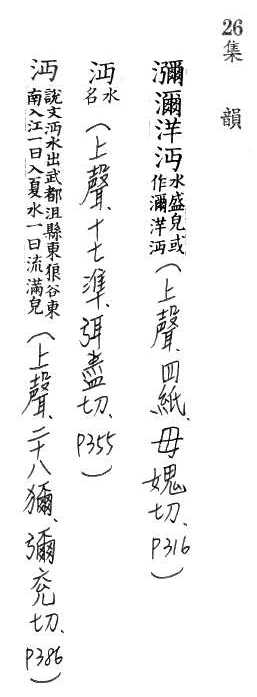 26集韻
瀰濔洋沔水盛皃或作濔洋沔(上聲、四紙、母婢切、P316)
沔水名(上聲、十七準、弭盡切、P355)
沔說文沔水出武都沮縣東狼谷東南入江一曰入夏水一曰流滿皃(上聲、二十八獮、彌兗切、P386)